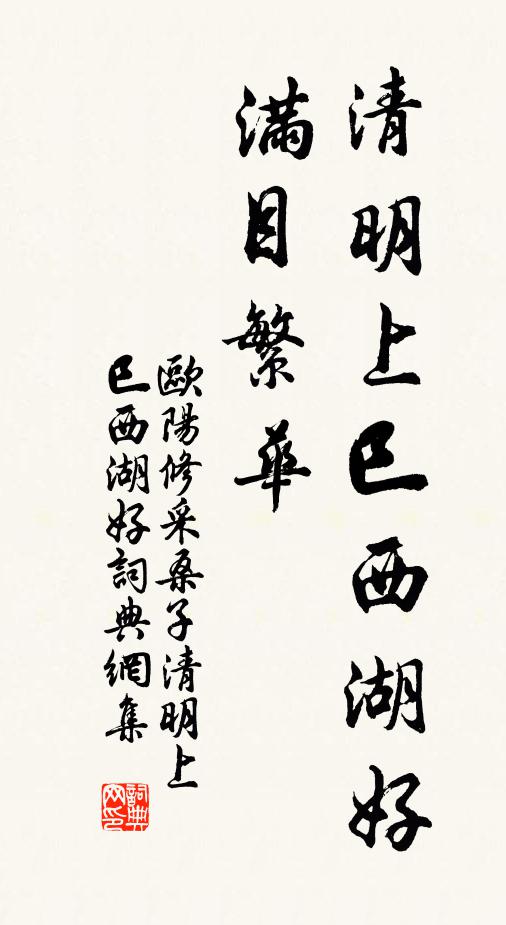 清明上巳西湖好
滿目繁華
歐陽修采桑子清明上
巳西湖好詞典網集
詞典网印